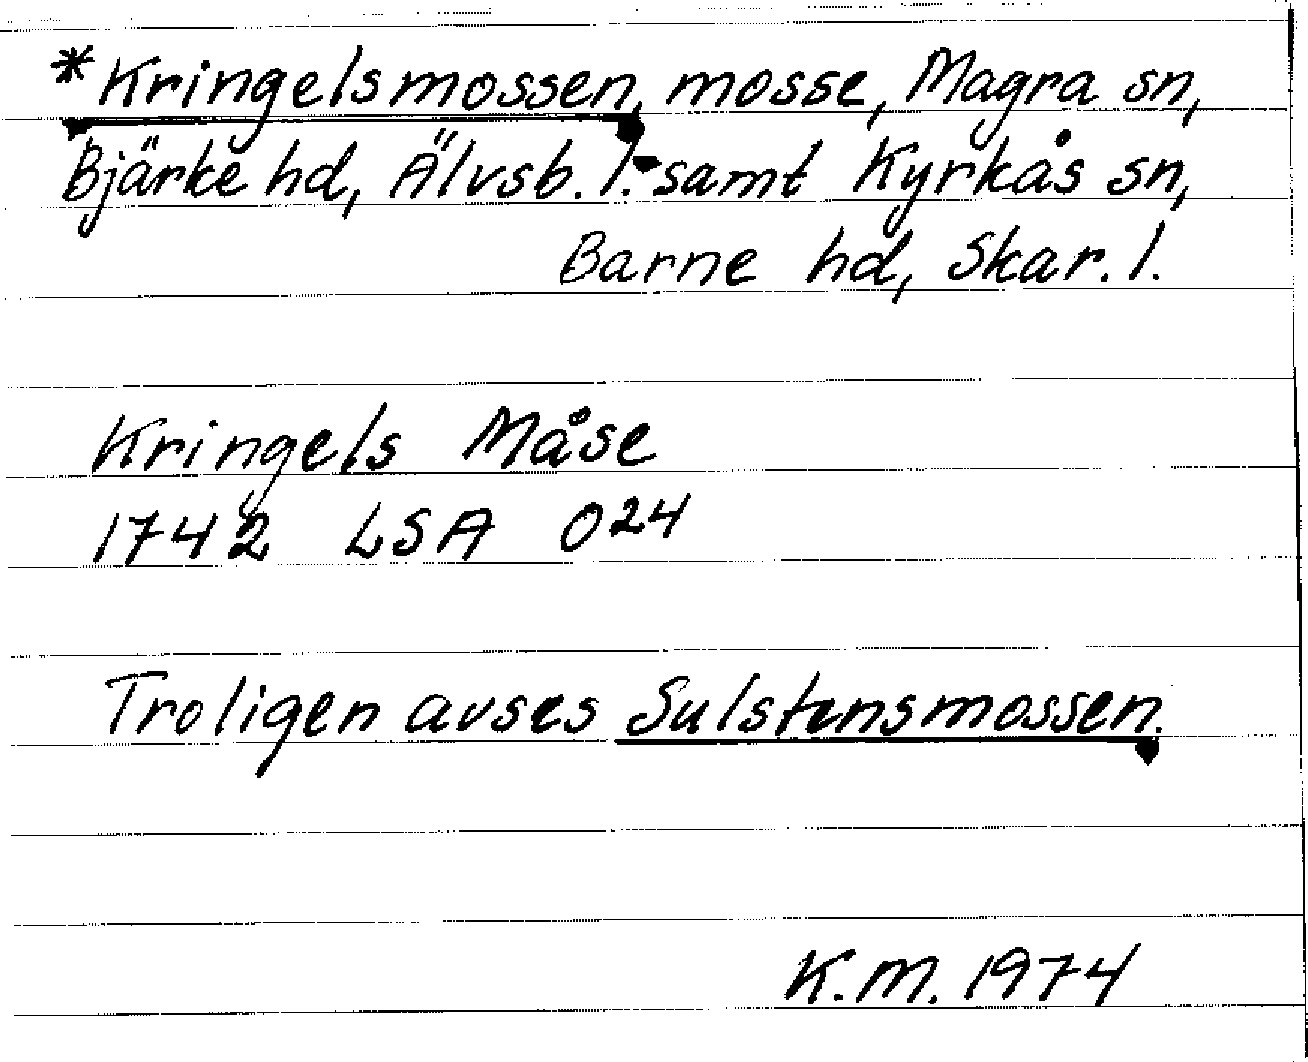 *Kringelsmossen, mosse, Magra sn,
Bjärke hd, Älvsb. l. samt Kyrkås sn,
Barne hd, Skar. l.
Kringels Måse
1742 LSA O24
Troligen avses Sulstensmossen.
K.M. 1974